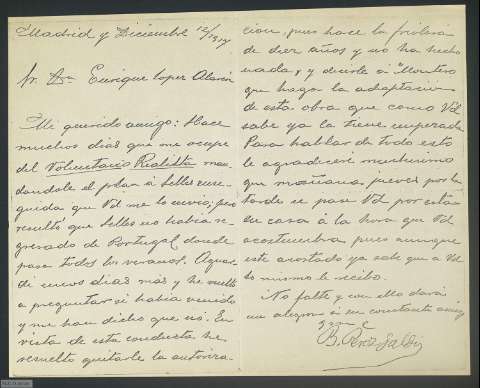 Madrid y Diciembre 12/1917
Sr. Dn Enrique Lopez Alarcón
Mi querido amigo: Hace
muchos dias que me ocupe
del Voluntario Realista man-
dandole el plan á Selles ense-
guida que Vd me lo envió; pero
resultó que Selles no habia re-
gresado de Portugal, donde
pasa todos los veranos. Aguar-
dé unos dias mas y he vuelto
a preguntar si habia venido
y me han dicho que no. En
vista de esta conducta he
resuelto quitarle la autoriza-
cion, pues hace la friolera
de diez años y no ha hecho
nada, y decirle á Montero
que haga la adaptacion
de esta obra que como Vd
sabe ya la tiene empezada
Para hablar de todo esto
le agradeceré muchisimo
que mañana, jueves por la
tarde se pase Vd por esta
su casa á la hora que Vd
acostumbra, pues aunque
este acostado ya sabe que a Vd
lo mismo le recibo.
No falte y con ello dará
un alegron á su constante amigo
B. Perez Galdós